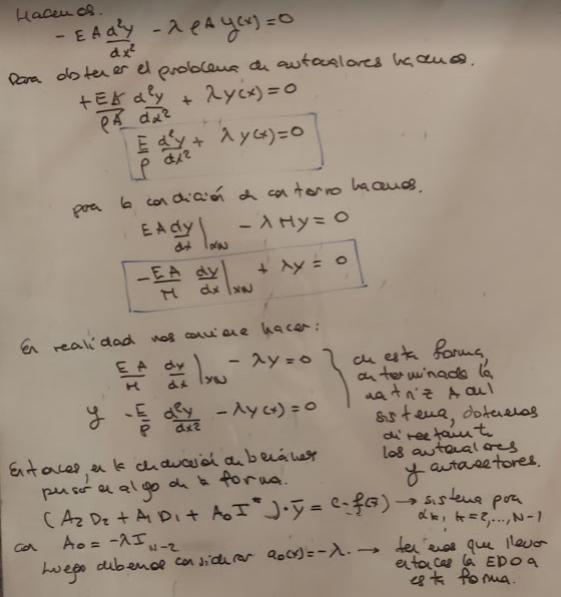 Hacemos.
- EA d²y/dx² - λρA y(x) = 0
Para obtener el problema de autovalores hacemos.
+ EA/ρA d²y/dx² + λy(x) = 0
E/ρ d²y/dx² + λy(x) = 0
para la condición de contorno hacemos.
EA dy/dx |xN - λMy = 0
- EA/M dy/dx |xN + λy = 0
En realidad nos conviene hacer:
EA/M dy/dx |xN - λy = 0
y - E/ρ d²y/dx² - λy(x) = 0
de esta forma,
determinada la
matriz A del
sistema, obtenemos
directamente
los autovalores
y autovectores.
Entonces, en la deberíamos
pensar en algo de la forma.
(A₂D₂ + A₁D₁ + A₀I*)·ȳ = → sistema para
k=2,...,N-1
con A₀ = -λI N-2
Luego debemos considerar a₀(x) = -λ. → tenemos que llevar
entonces la EDO a
esta forma.